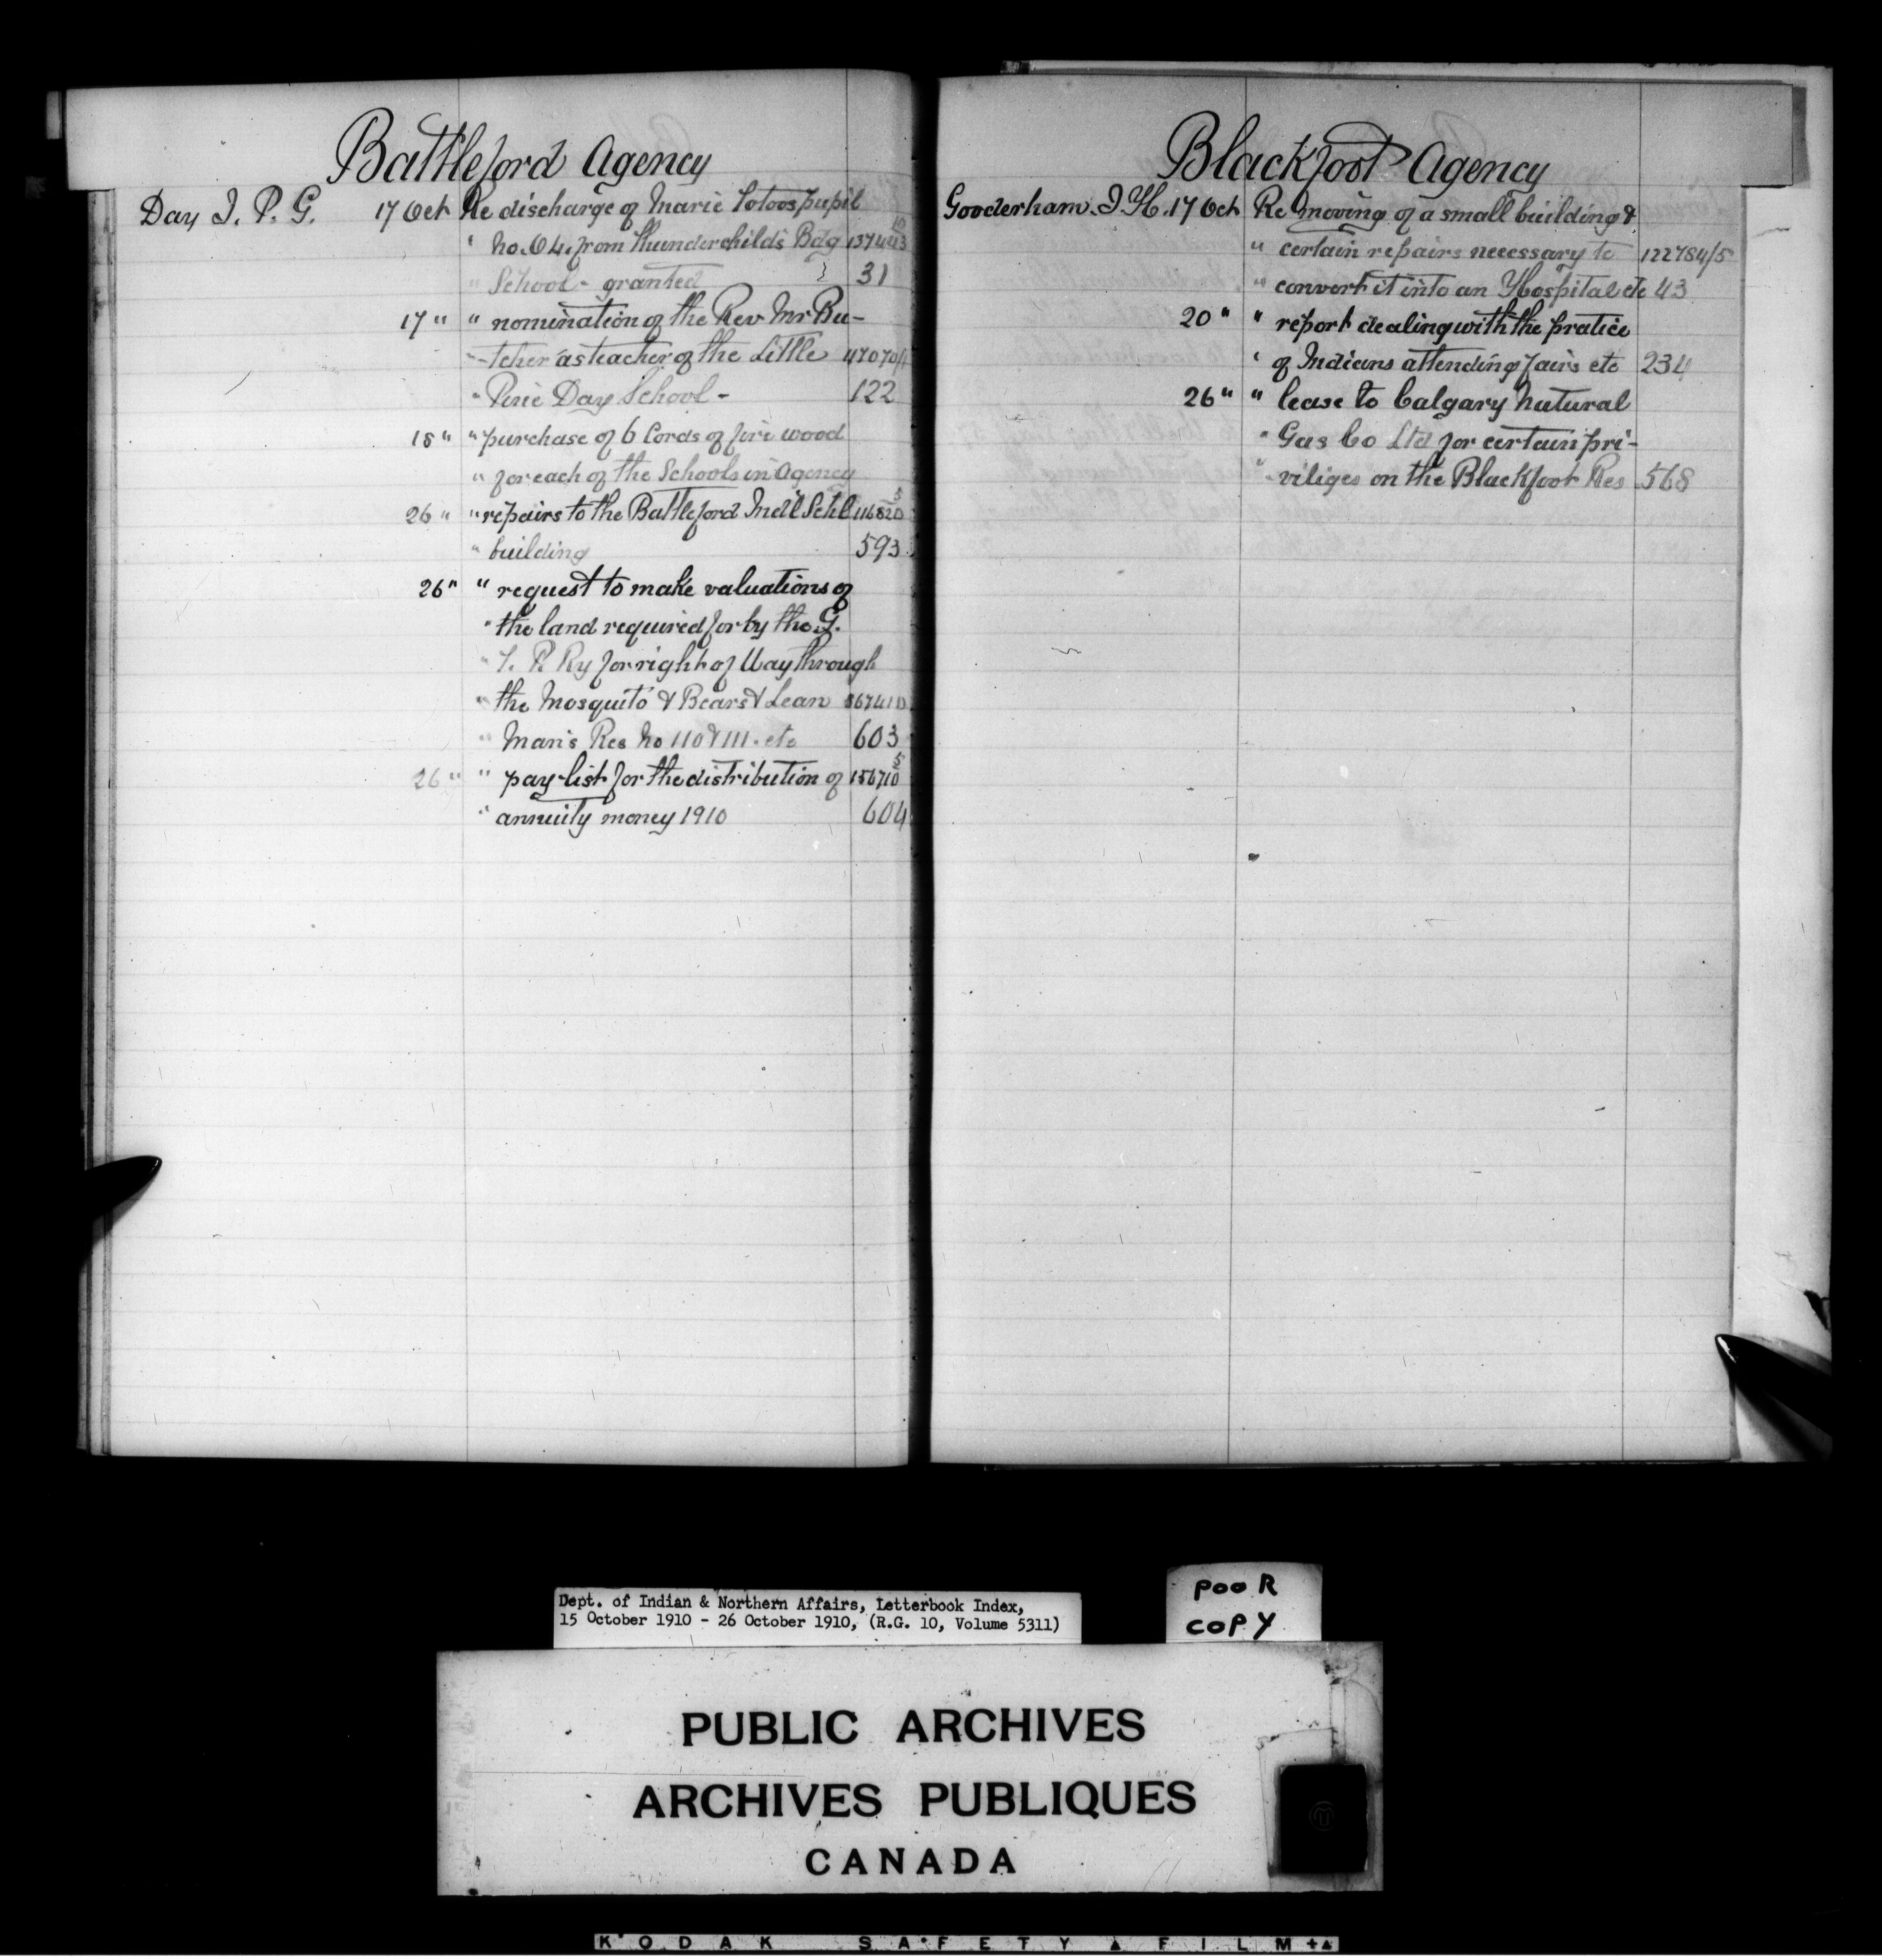 Battleford Agency
Day J. P. G. 17 Oct Re discharge of Marie pupil
" No. 64. from Thunderchilds Bdg 137443 10
" School - granted } 31
17 " " nomination of the Rev Mr Bu-
" -tcher as teacher of the Little 47070/1
" Pine Day School - 122
18 " " purchase of 6 Cords of fire wood
" for each of the Schools in Agency
26 " " repairs to the Battleford Ind'l Schl 116820 5
" building 593
26 " " request to make valuations of
" the land required for by the G.
" T. P. Ry for right of Way through
" the Mosquito & Bears & Lean 367410
" Man's Res No 110 & 111. etc 603
26 " " pay-list for the distribution of 156710 5
" annuity money 1910 604
Blackfoot Agency
Gooderham. J. H. 17 Oct Re moving of a small building &
" certain repairs necessary to 122784/5
" convert it into an Hospital etc 43
20 " " report dealing with the pratice
" of Indians attending fairs etc 234
26 " " lease to Calgary Natural
" Gas Co Ltd for certain pri-
" -viliges on the Blackfoot Res 568
Dept. of Indian & Northern Affairs, Letterbook Index,
15 October 1910 - 26 October 1910, (R.G. 10, Volume 5311)
POOR
COPY
PUBLIC ARCHIVES
ARCHIVES PUBLIQUES
CANADA
KODAK SAFETY FILM